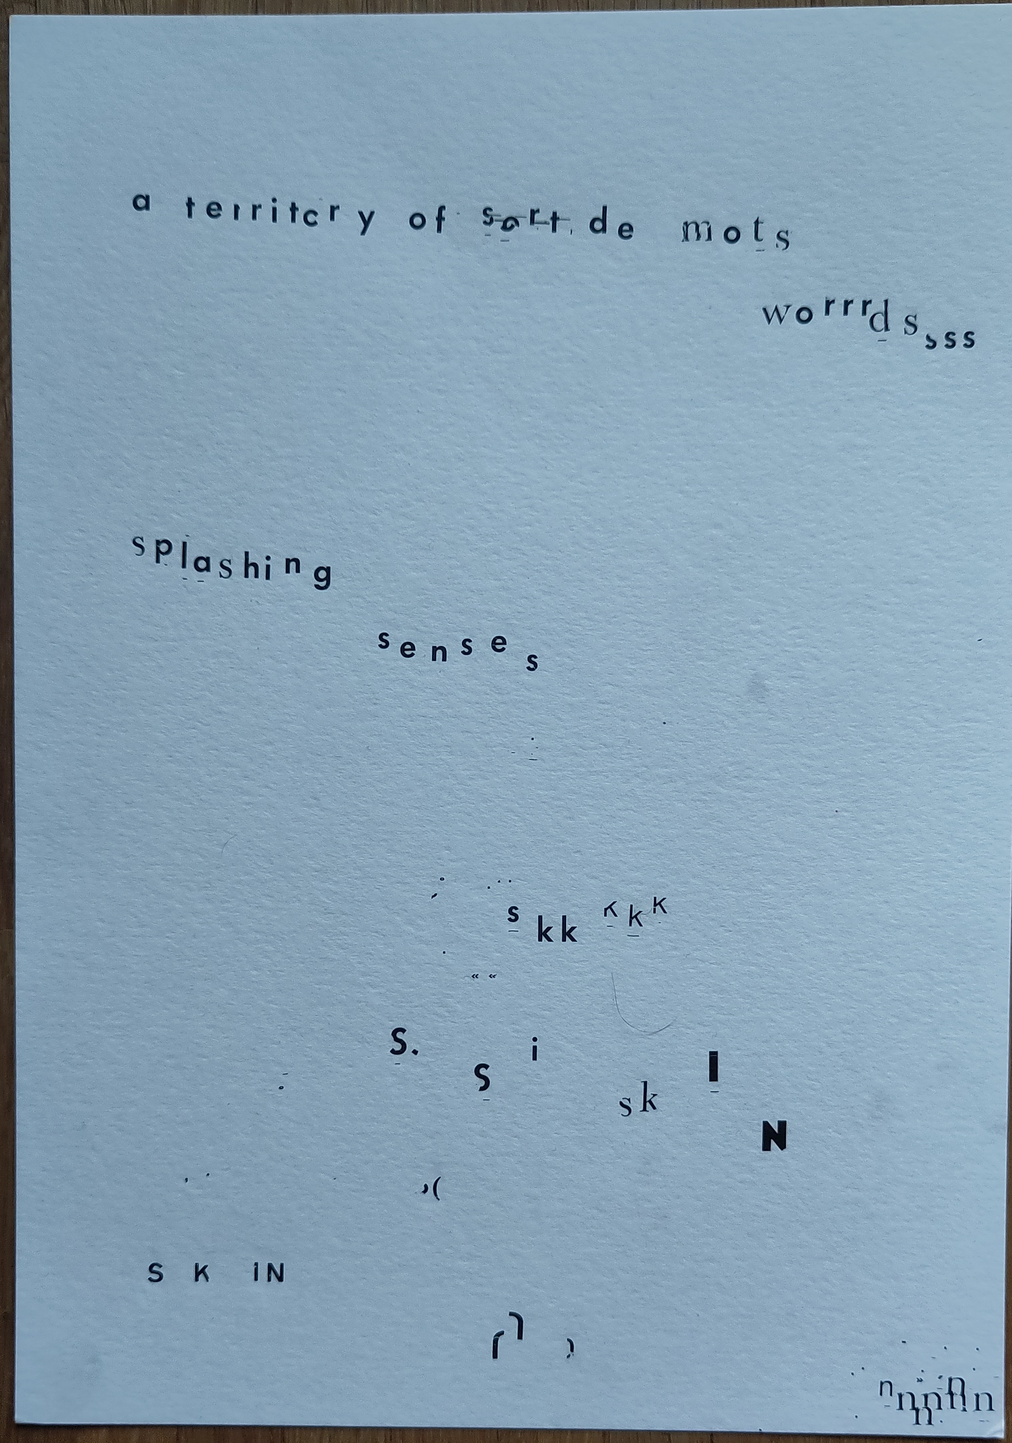 a territory of sort de mots
worrrdssss
splashing
senses
skk kkk
« «
S. s i sk I
N
,(
S K iN